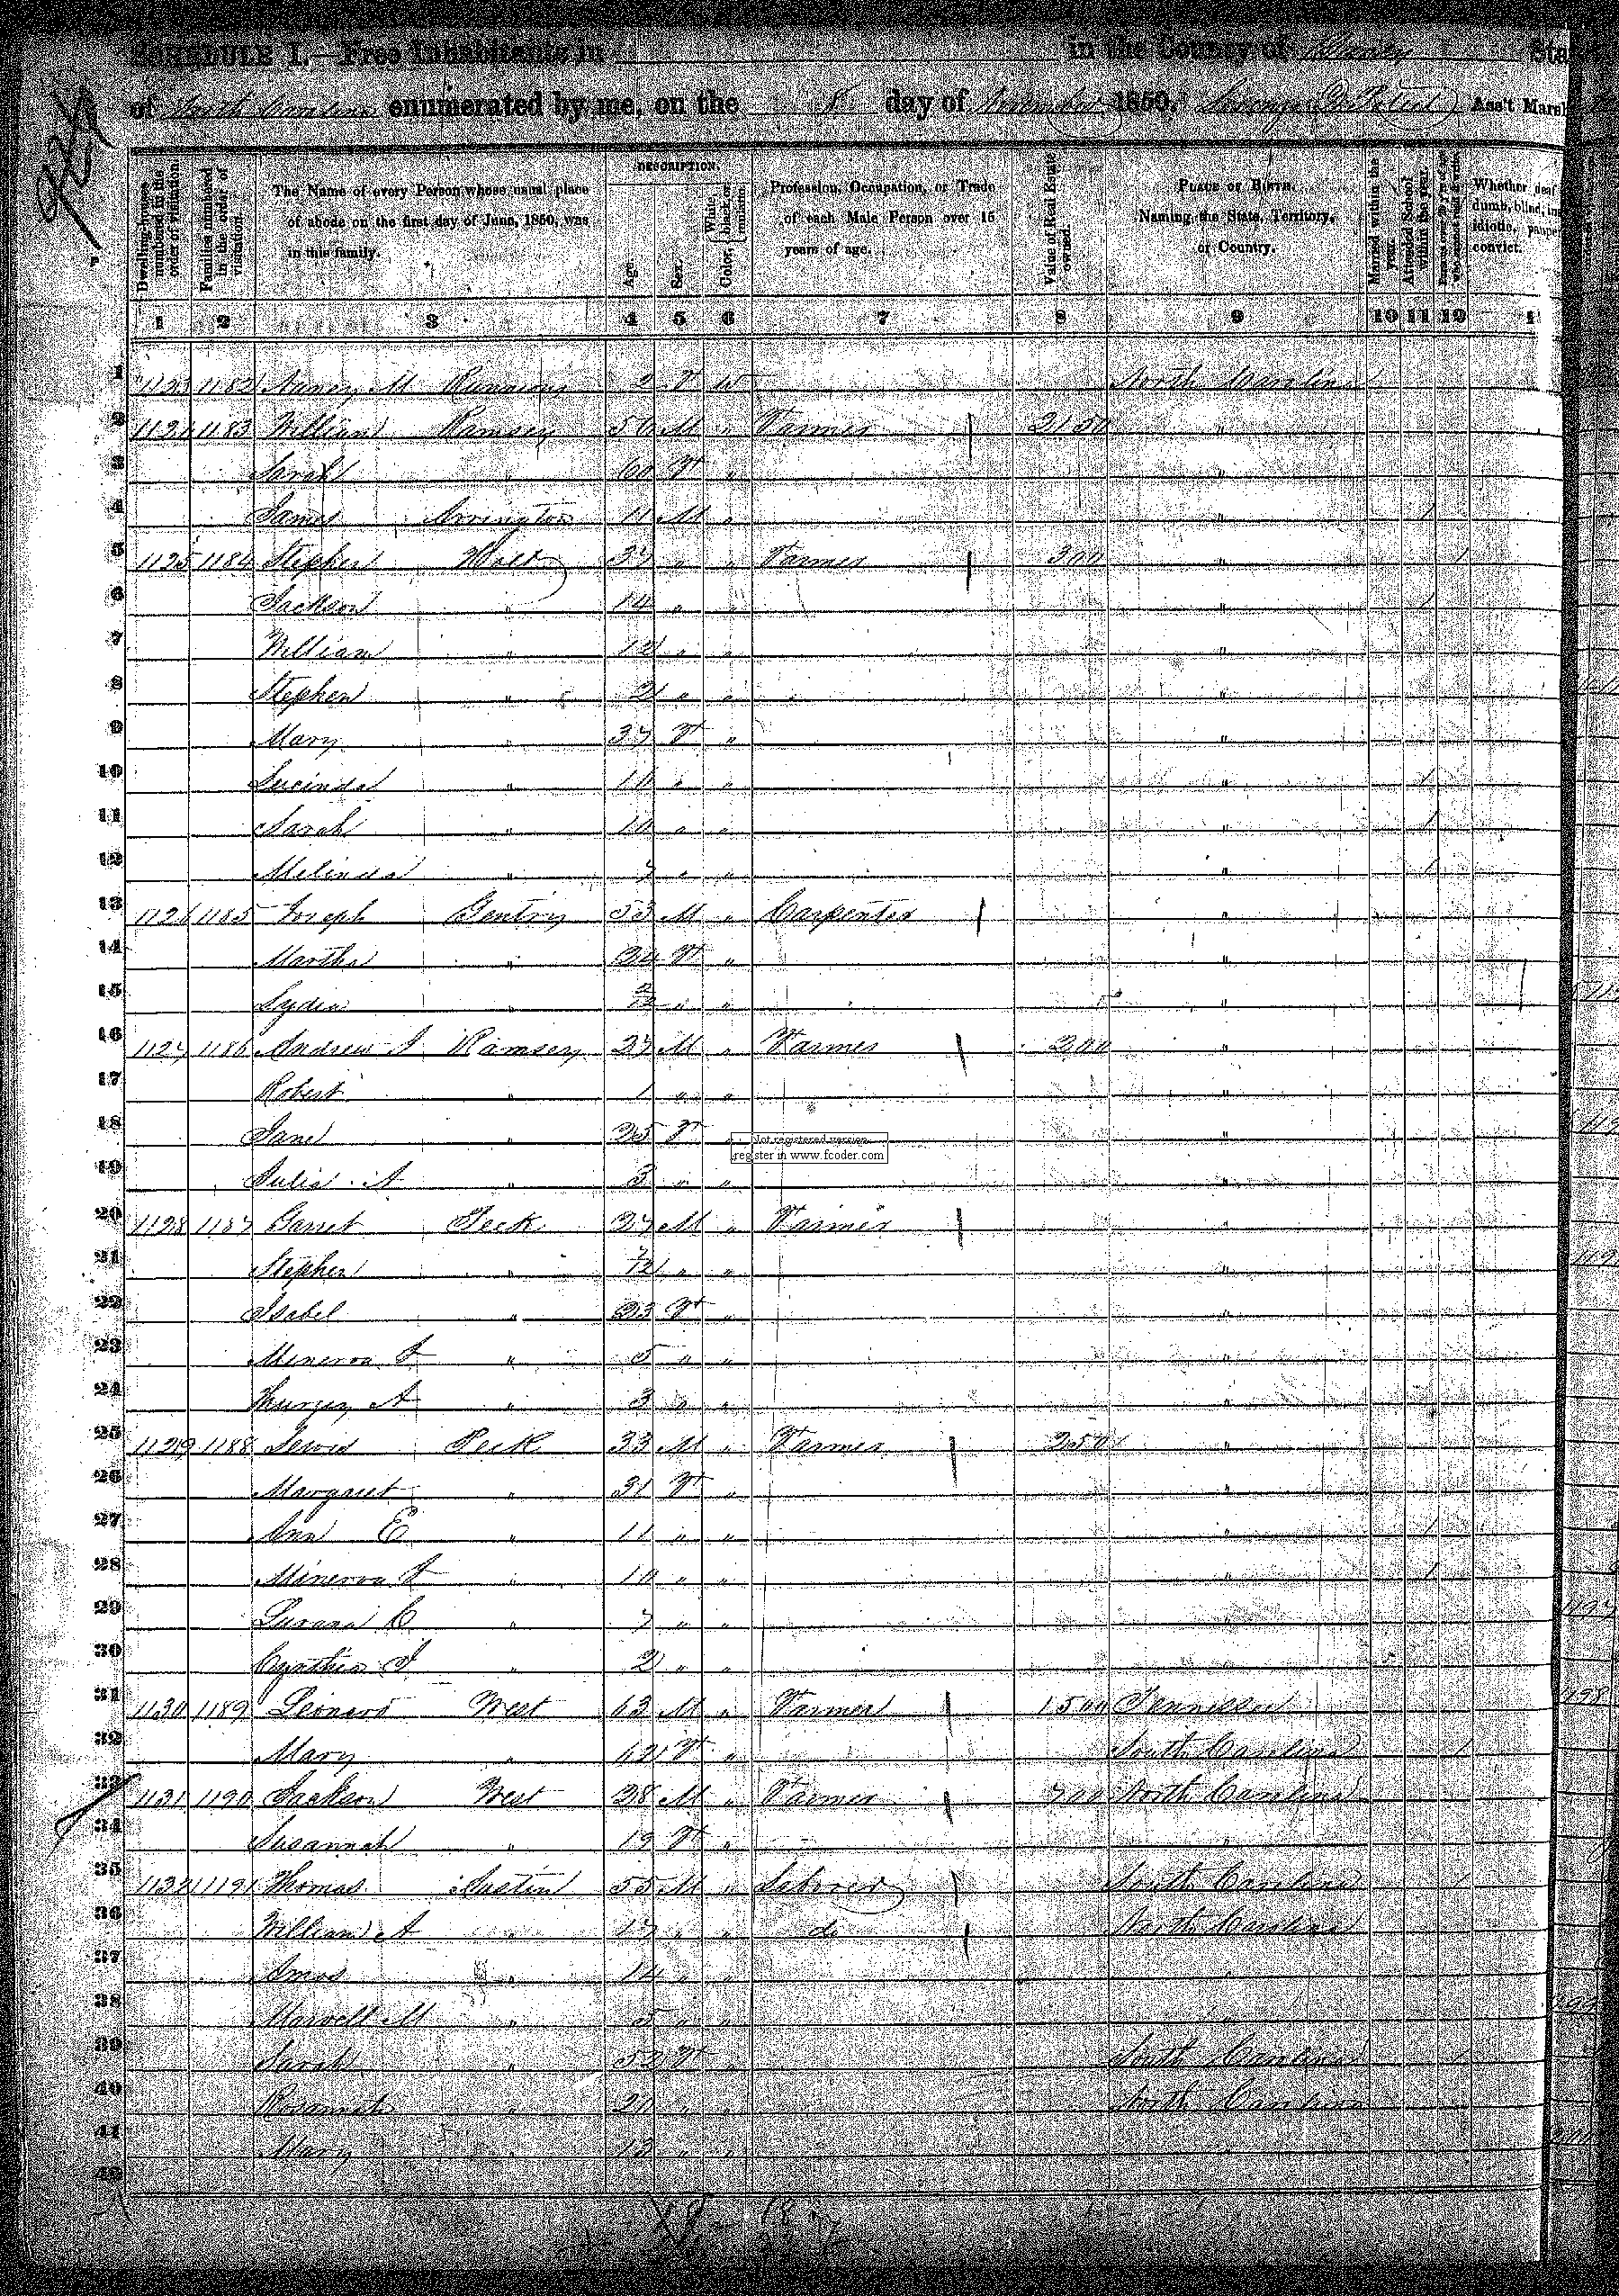 SCHEDULE I.—Free Inhabitants in in the County of Yancey
of North Carolina enumerated by me, on the 8 day of November 1850. Ass't Marsh
DESCRIPTION.
Dwelling-houses numbered in the order of visitation.
Families numbered in the order of visitation.
The Name of every Person whose usual place of abode on the first day of June, 1850, was in this family.
Age.
Sex.
Color, White, black, or mulatto.
Profession, Occupation, or Trade of each Male Person over 15 years of age.
Value of Real Estate owned.
PLACE OF BIRTH. Naming the State, Territory, or Country.
Married within the year.
Attended School within the year.
Whether deaf dumb, blind, idiotic, pauper convict.
1 2 3 4 5 6 7 8 9 10 11 12 1
1 1123 1182 Nancy M 2 F W North Carolina
2 1124 1183 William Ramsey 56 M " Farmer 2150 "
3 Sarah " 60 F " "
4 James Arrington 11 M " " 1
5 1125 1184 Stephen Holt 37 " " Farmer 300 " 1
6 Jackson " 14 " " " 1
7 William " 12 " " "
8 Stephen " 2 " " "
9 Mary " 37 F " "
10 Lucinda " 10 " " " 1
11 Sarah " 10 " " " 1
12 Melinda " 7 " " " 1
13 1126 1185 Joseph Gentry 53 M " Carpenter "
14 Martha " 34 F " "
15 Lydia " 2/12 " " "
16 1127 1186 Andrew J Ramsey 27 M " Farmer 200 "
17 Robert " 1 " " "
18 Jane " 25 F "
Not registered version
register in www.fcoder.com
19 Julia A " 3 " " "
20 1128 1187 Garret Peek 27 M " Farmer "
21 Stephen " 7/12 " " "
22 Isabel " 23 F "
23 Minerva J " 5 " " "
24 A " 3 " " "
25 1129 1188 Lewis Peek 33 M " Farmer 250 "
26 Margaret " 31 F " "
27 Ann E " 11 " " " 1
28 Minerva J " 10 " " " 1
29 C " 7 " " "
30 Cynthia J " 2 " "
31 1130 1189 Leonard West 63 M " Farmer 1500 Tennessee
32 Mary " 62 F " South Carolina 1
33 1131 1190 Jackson West 28 M " Farmer 700 North Carolina
34 Susannah " 19 F " "
35 1132 1191 Thomas Austin 55 M " Laborer South Carolina 1
36 William A " 17 " " do North Carolina
37 Amos " 14 " "
38 M " 5 " "
39 Sarah " 52 F " South Carolina
40 Rosannah " 20 " " North Carolina
41 Mary " 13 " "
42